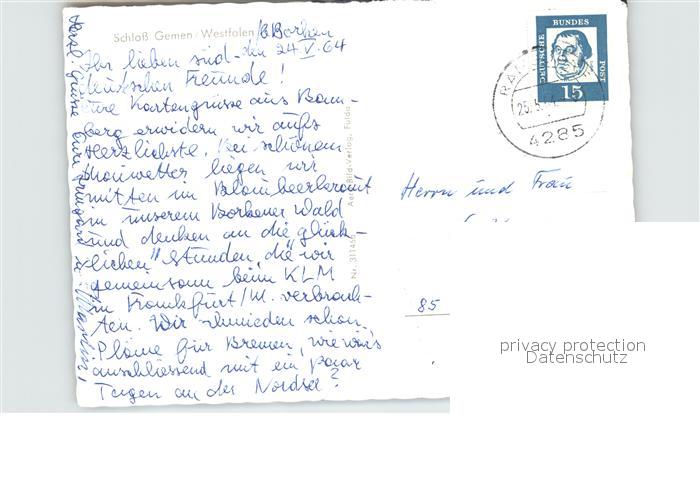 Schloß Gemen / Westfalen /B. Borken
den 24.V.64
Ihr lieben süd-
deutschen Freunde!
Eure Kartengrüsse aus Bam-
berg erwidern wir aufs
Herzlichste. Bei schönem
wetter liegen wir
mitten im Blaubeerkraut
in unserem Borkener Wald
und denken an die "glück-
lichen" Stunden, die wir
gemeinsam beim KLM
in Frankfurt/M. verbrach-
ten. Wir schmieden schon
Pläne für Bremen, wie wär's
anschliessend mit ein paar
Tagen an der Nordsee?
Herzl. Grüsse Eure Irmgard u. Martin
Nr. 311466
Aero-Bild-Verlag, Fulda
DEUTSCHE BUNDES POST
15
25.5.64
4285
Herrn und Frau
85
privacy protection
Datenschutz